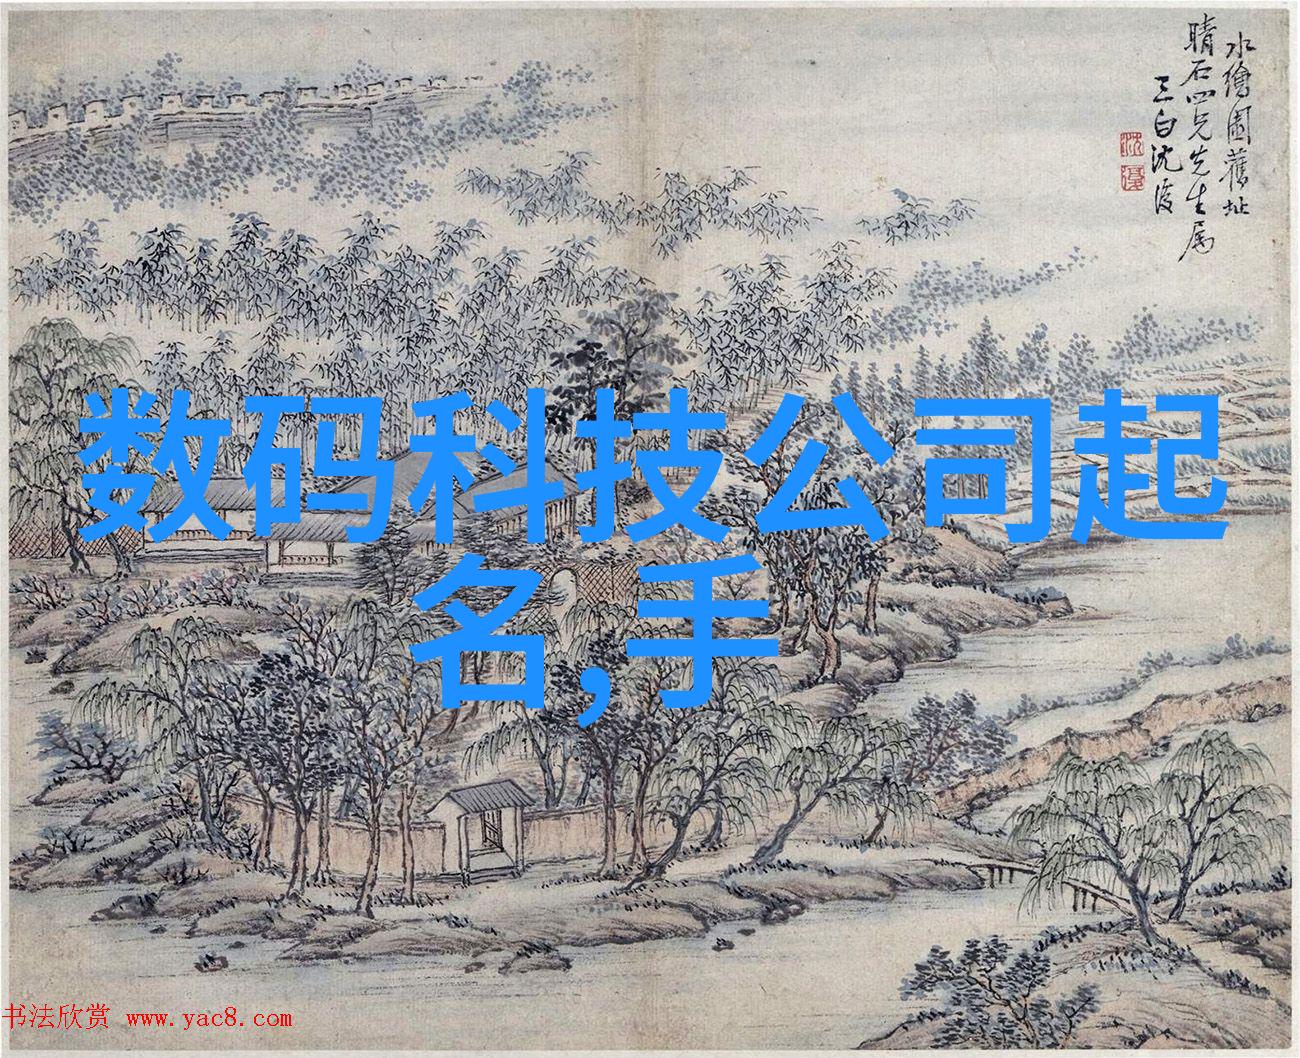 水繪園舊址
晴石四兄先生属
三白沈復
沈
復
数码科技公司起
名,手
书法欣赏 www.yac8.com